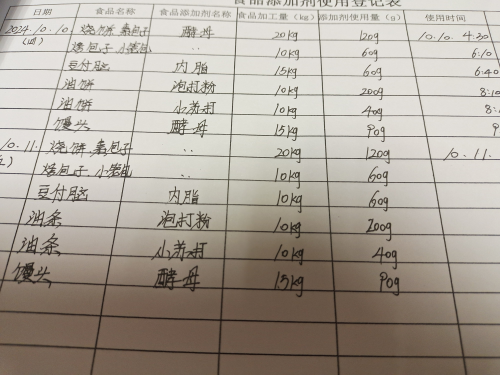 食品添加剂使用登记表
日期 食品名称 食品添加剂名称 食品加工量(kg) 添加剂使用量(g) 使用时间
2024.10.10 烧饼.素包子 酵母 20kg 120g 10.10. 4:30
(四) 烤包子.小笼包 ,, 10kg 60g 6:10
豆付脑 内脂 15kg 60g 6:40
油饼 泡打粉 10kg 200g 8:10
油饼 小苏打 10kg 40g 8:
馒头 酵母 15kg 90g
10.11. 烧饼.素包子 ,, 20kg 120g 10.11.
烤包子.小笼包 ,, 10kg 60g
豆付脑 内脂 10kg 60g
油条 泡打粉 10kg 200g
油条 小苏打 10kg 40g
馒头 酵母 15kg 90g